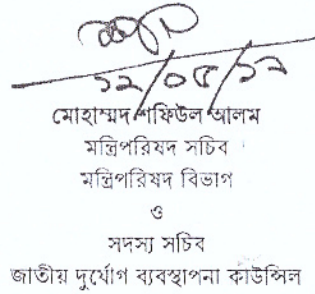 ১২/০৫/১৯
মোহাম্মদ শফিউল আলম
মন্ত্রিপরিষদ সচিব
মন্ত্রিপরিষদ বিভাগ
ও
সদস্য সচিব
জাতীয় দুর্যোগ ব্যবস্থাপনা কাউন্সিল